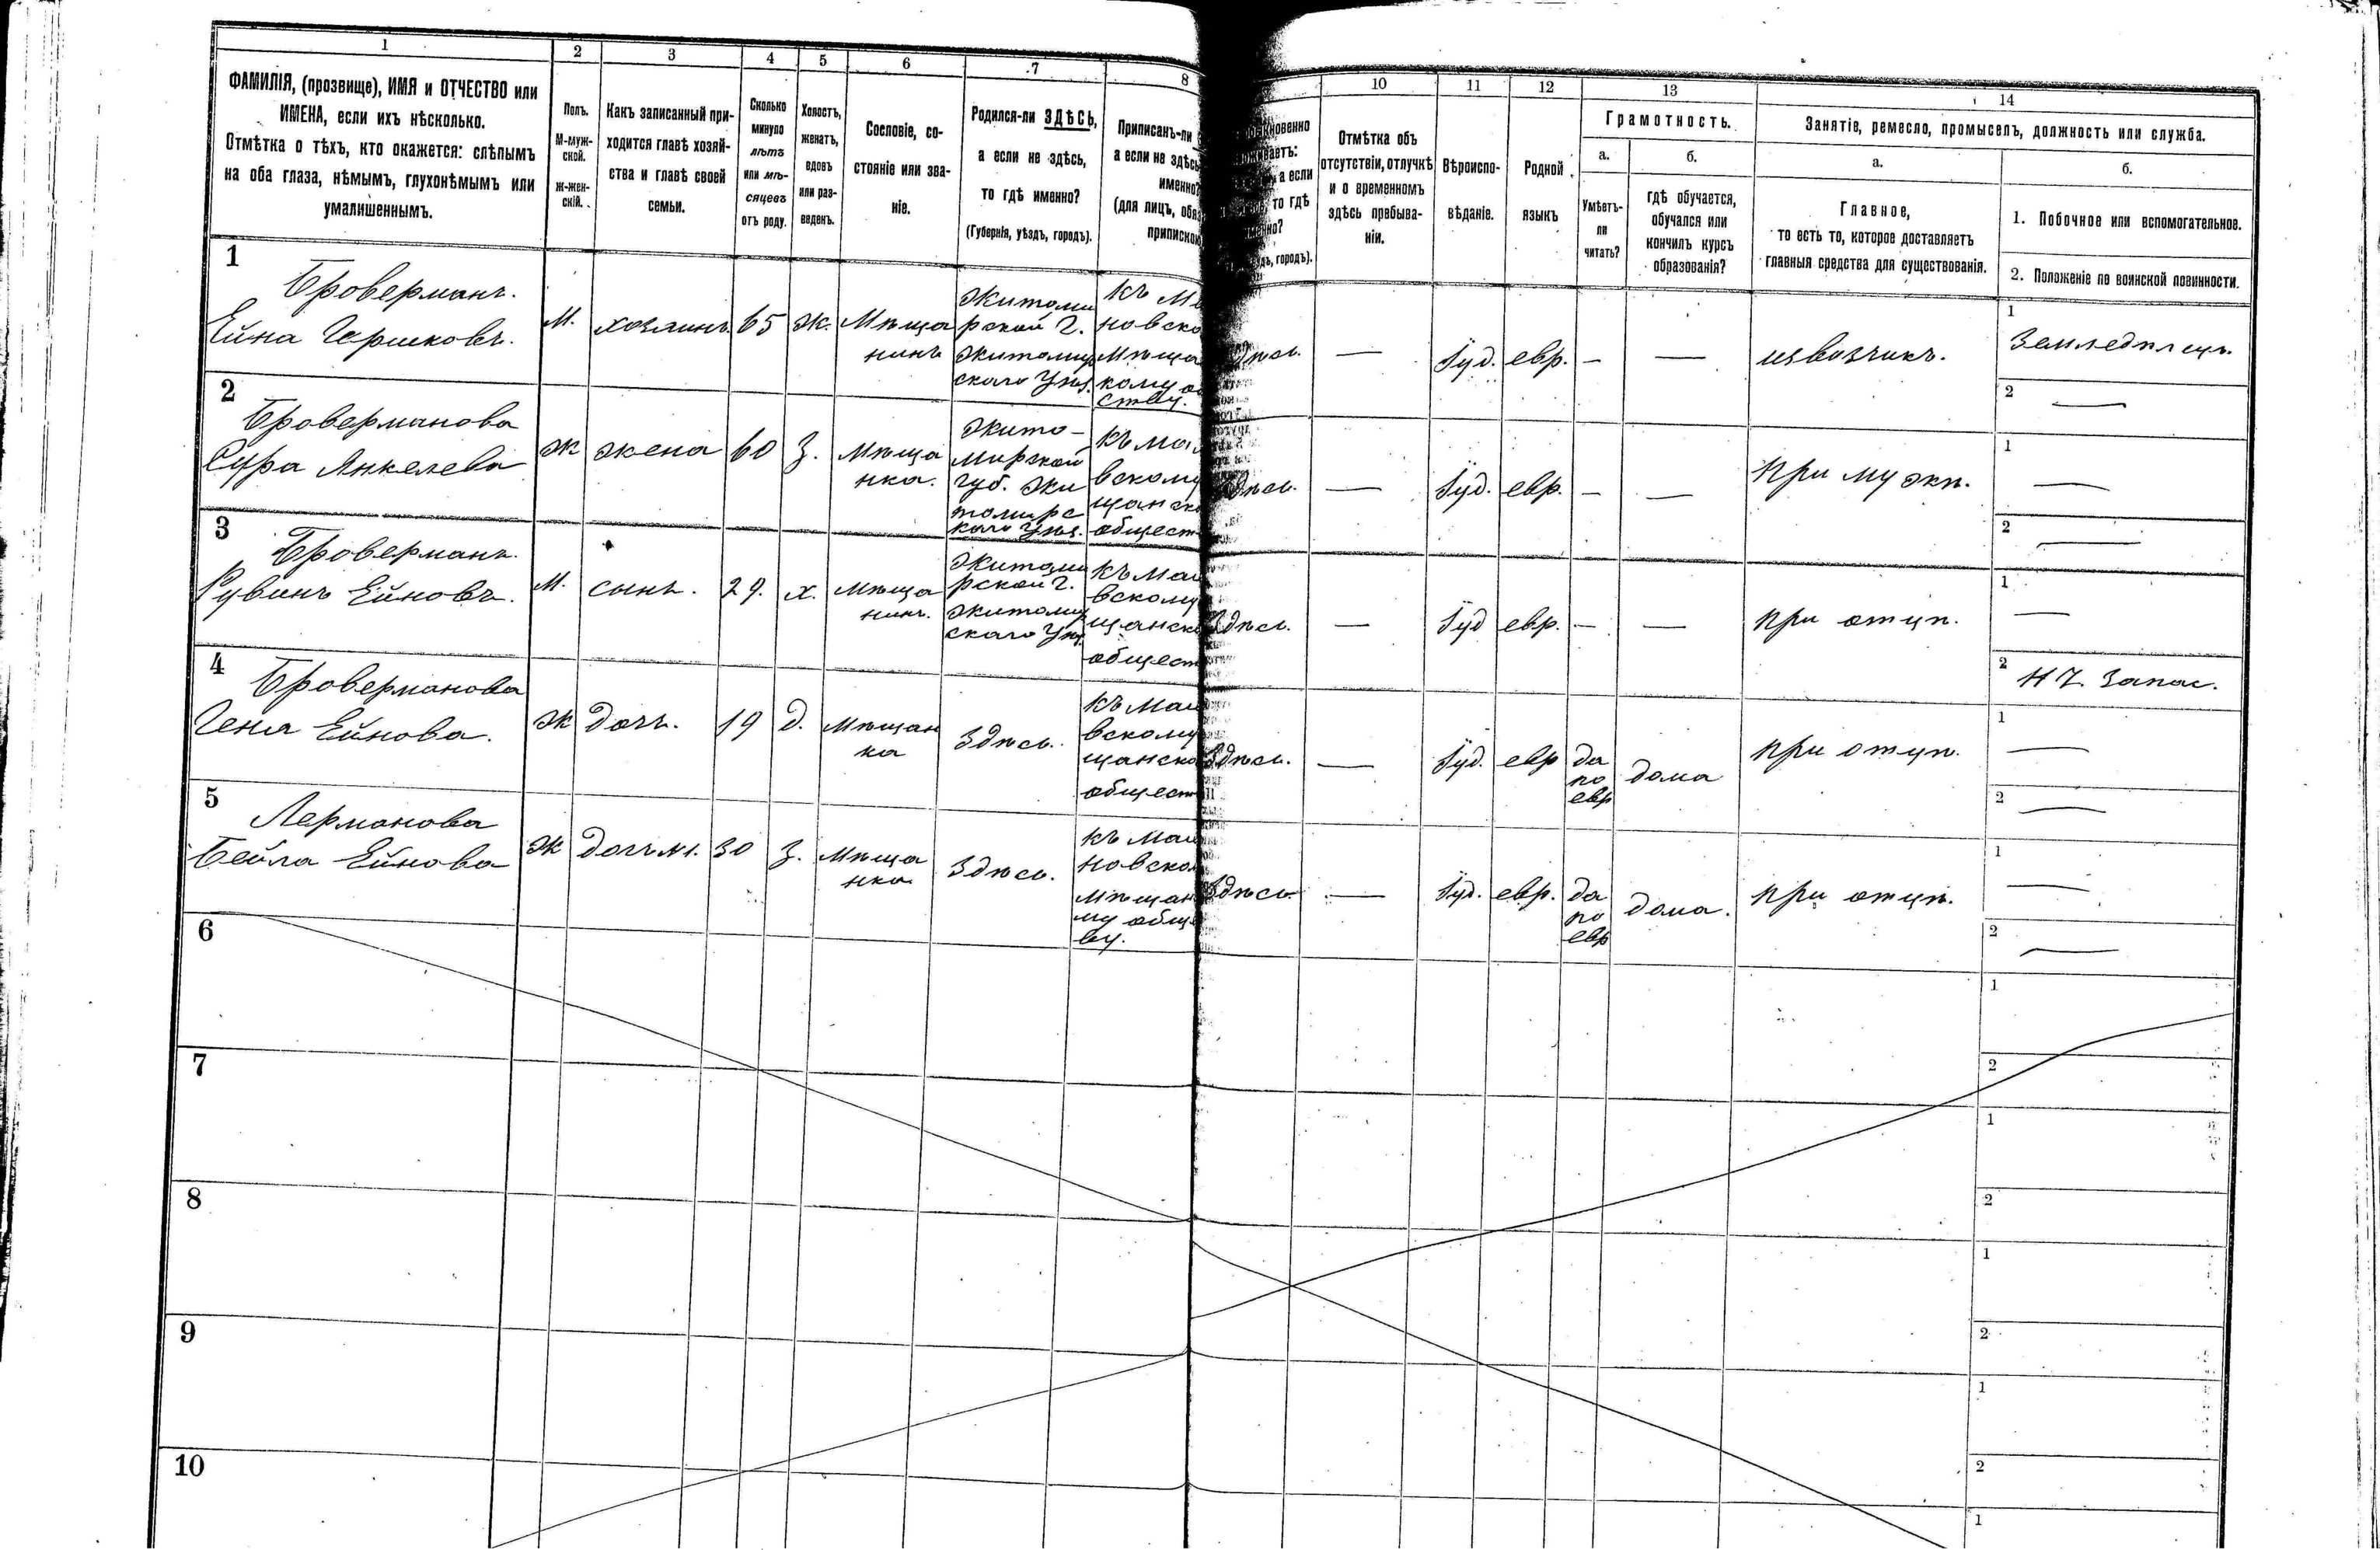 1 2 3 4 5 6 7 8
ФАМИЛІЯ, (прозвище), ИМЯ и ОТЧЕСТВО или
ИМЕНА, если ихъ нѣсколько.
Отмѣтка о тѣхъ, кто окажется: слѣпымъ
на оба глаза, нѣмымъ, глухонѣмымъ или
умалишеннымъ.
Полъ.
М-муж-
ской.
Ж-жен-
скій.
Какъ записанный при-
ходится главѣ хозяй-
ства и главѣ своей
семьи.
Сколько
минуло
лѣтъ
или мѣ-
сяцевъ
отъ роду.
Холостъ,
женатъ,
вдовъ
или раз-
веденъ.
Сословіе, со-
стояніе или зва-
ніе.
Родился-ли ЗДѢСЬ,
а если не здѣсь,
то гдѣ именно?
(Губернія, уѣздъ, городъ).
Приписанъ-ли
а если не здѣсь
именно?
(для лицъ,
припиской
10 11 12 13 14
а если
то гдѣ
городъ).
Отмѣтка объ
отсутствіи, отлучкѣ
и о временномъ
здѣсь пребыва-
ніи.
Вѣроиспо-
вѣданіе.
Родной
языкъ
Грамотность.
а.
Умѣетъ-
ли
читать?
б.
гдѣ обучается,
обучался или
кончилъ курсъ
образованія?
Занятіе, ремесло, промыселъ, должность или служба.
а.
Главное,
то есть то, которое доставляетъ
главныя средства для существованія.
б.
1. Побочное или вспомогательное.
2. Положеніе по воинской повинности.
1
Броверманъ.
Ейна Гершковъ.
М.
хозяинъ
65
ж.
Мѣща
нинъ
Житоми
рской г.
Житомир
скаго Уѣз.
Къ
новско
мѣща
кому
ству.
—
Іуд.
евр.
—
—
извозчикъ.
1
Земледѣлецъ
2 —
2
Броверманова
Сура Янкелева
ж
жена
60
З.
Мѣща
нка.
Жито-
мирской
губ. Жи
томирс
каго Уѣз.
Къ
вскому
щанск
общест
—
Іуд.
евр.
—
—
при мужѣ.
1 —
2 —
3
Броверманъ
Рувинъ Ейновъ.
М.
сынъ.
29.
х.
Мѣща
нинъ.
Житоми
рской г.
Житомир
скаго Уѣз.
Къ Мал
вскому
щанск
общест
Здѣсь.
—
Іуд
евр.
—
—
при отцѣ.
1 —
2 Запас.
4
Броверманова
Геня Ейнова.
ж
дочь.
19
д.
Мѣщан
ка
Здѣсь.
Къ Мал
вскому
щанско
общест
Здѣсь.
—
Іуд.
евр
да
по
евр
дома
при отцѣ.
1 —
2 —
5
Лерманова
Бейла Ейнова
ж
дочь №1.
30
З.
Мѣща
нка
Здѣсь.
Къ Мал
новско
Мѣщан
му обще
ву.
Здѣсь
—
Іуд.
евр.
да
по
евр
дома.
при отцѣ.
1 —
2 —
6
1
2
7
1
2
8
1
2
9
1
2
10
1